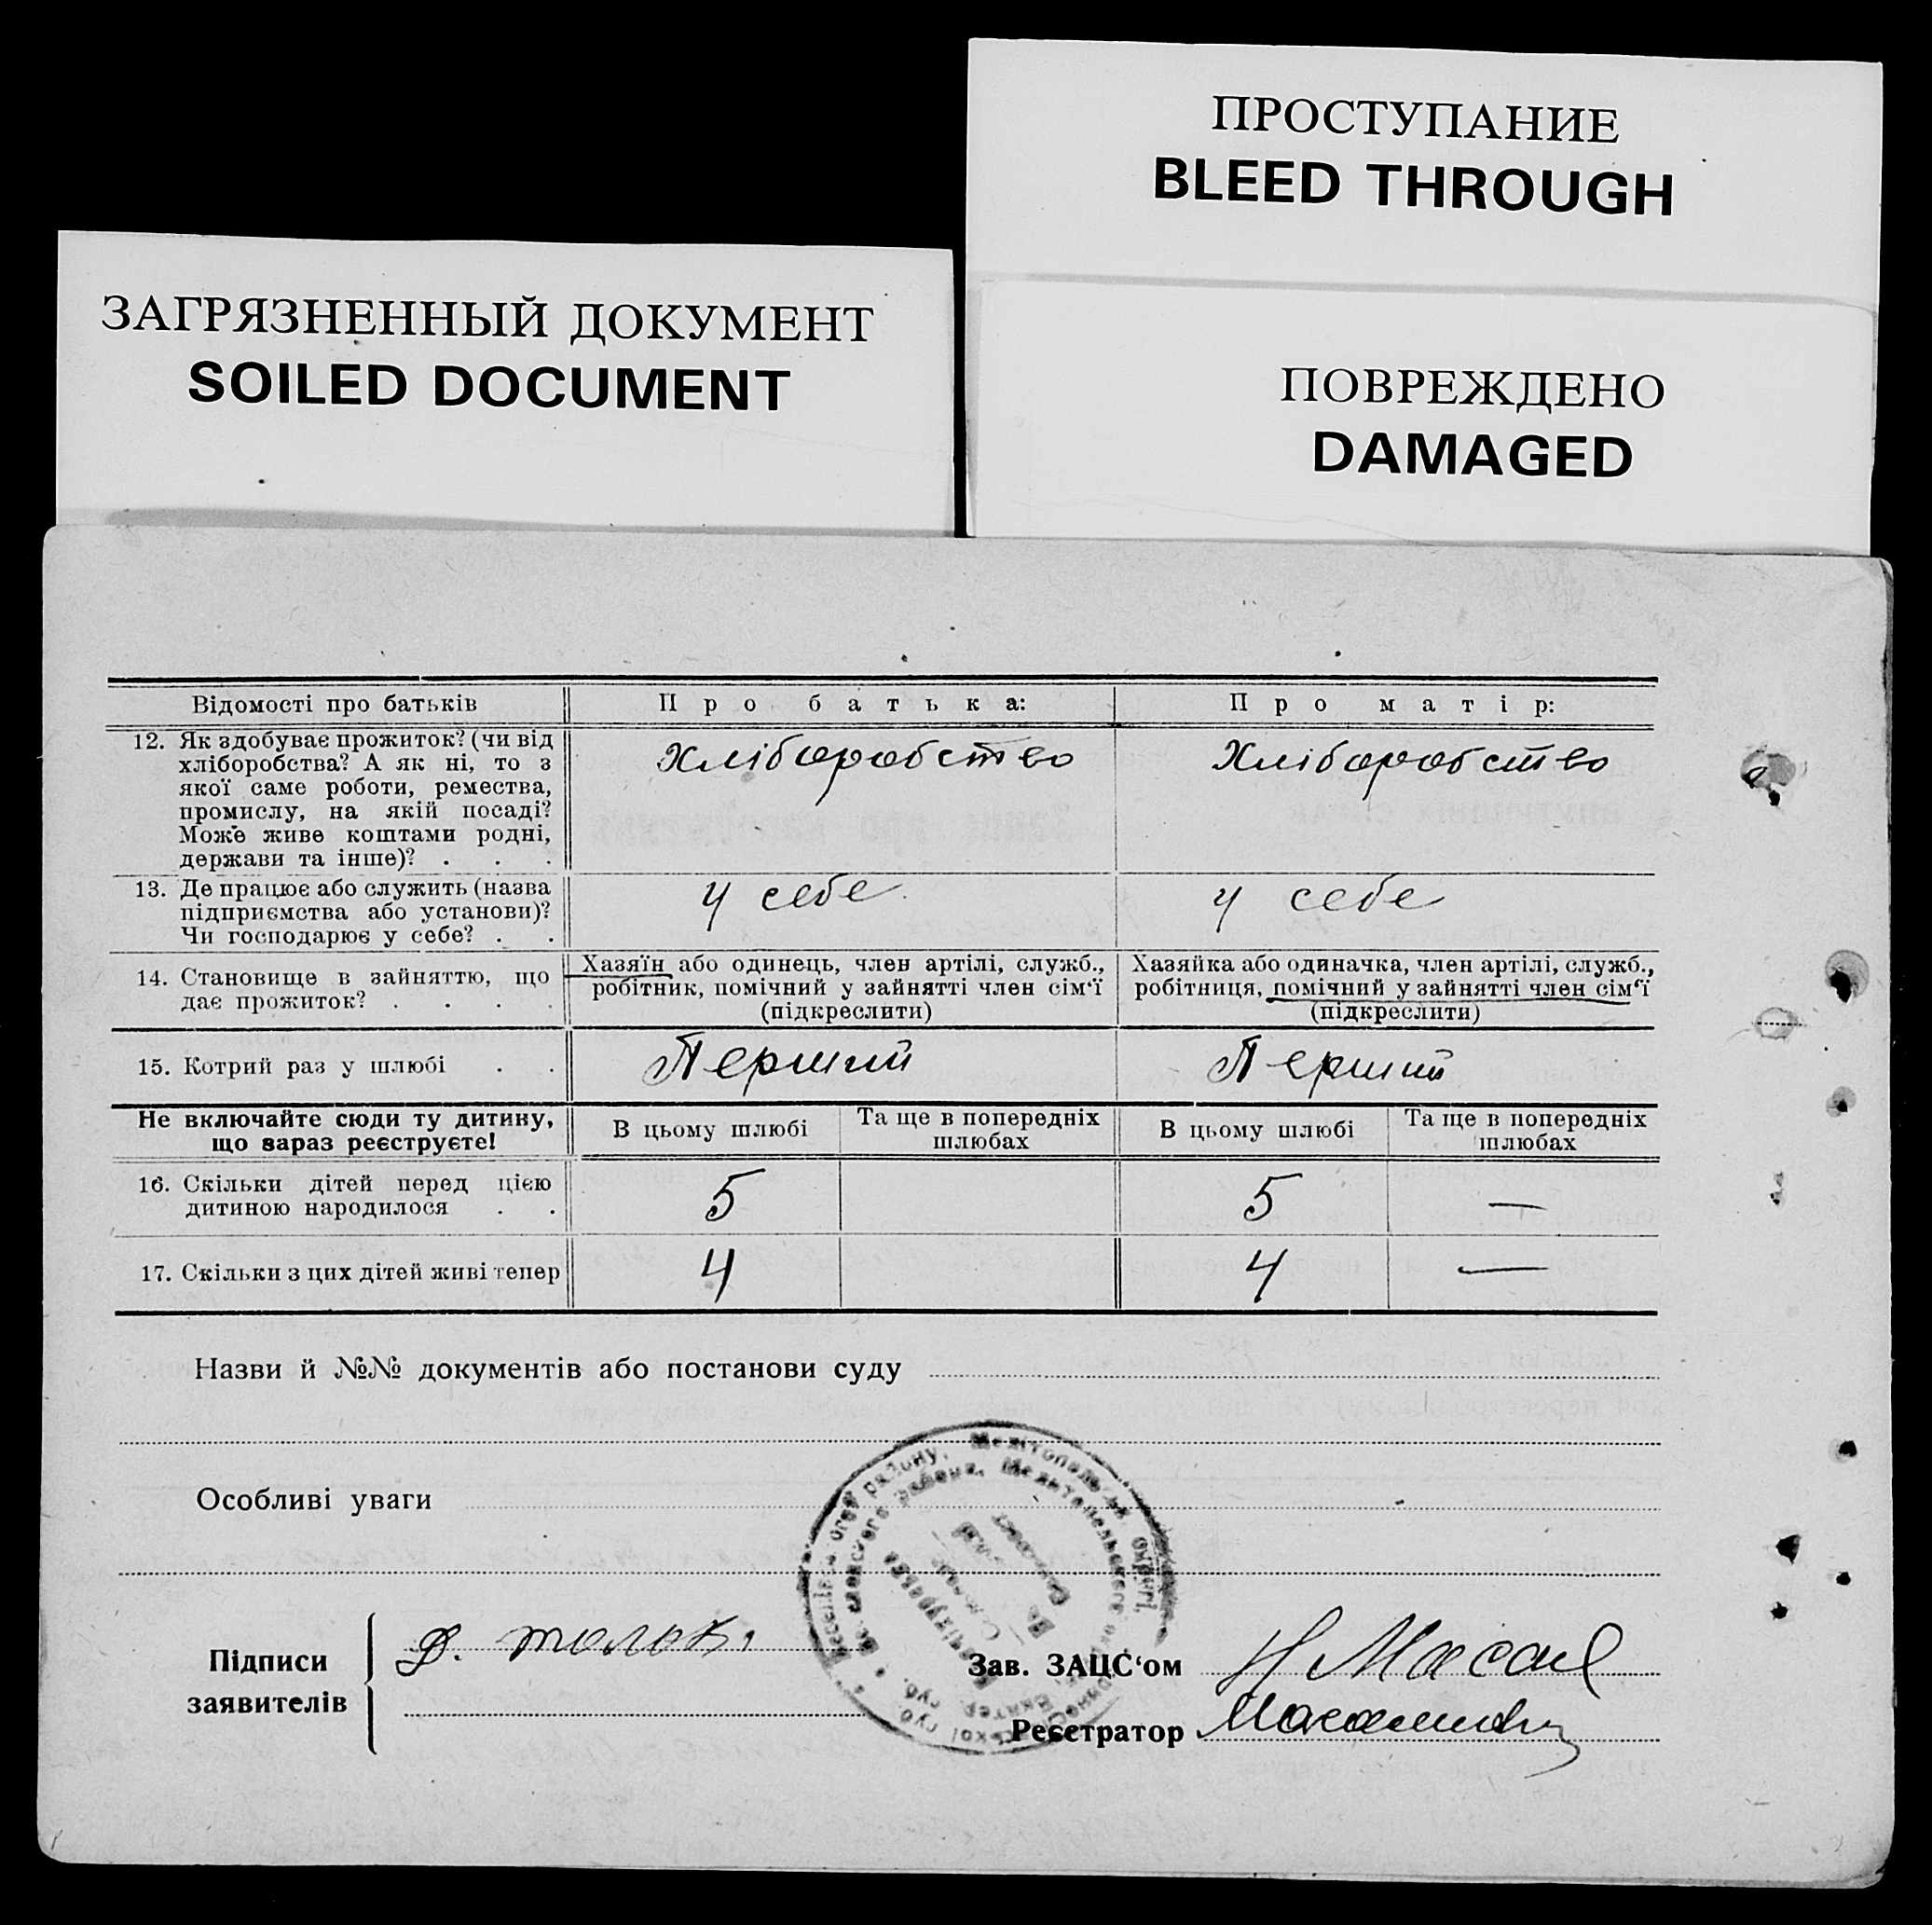 ПРОСТУПАНИЕ
BLEED THROUGH
ЗАГРЯЗНЕННЫЙ ДОКУМЕНТ
SOILED DOCUMENT
ПОВРЕЖДЕНО
DAMAGED
Відомості про батьків Про батька: Про матір:
12. Як здобуває прожиток? (чи від
хліборобства? А як ні, то з
якої саме роботи, ремества,
промислу, на якій посаді?
Може живе коштами родні,
держави та інше)? . . .
Хліборобство Хліборобство
13. Де працює або служить (назва
підприємства або установи)?
Чи господарює у себе? . .
У себе У себе
14. Становище в зайняттю, що
дає прожиток? . . . .
Хазяїн або одинець, член артілі, служб.,
робітник, помічний у зайнятті член сім‘ї
(підкреслити)
Хазяйка або одиначка, член артілі, служб.,
робітниця, помічний у зайнятті член сім‘ї
(підкреслити)
15. Котрий раз у шлюбі . . Перший Перший
Не включайте сюди ту дитину,
що зараз реєструєте!
В цьому шлюбі Та ще в попередніх
шлюбах
В цьому шлюбі Та ще в попередніх
шлюбах
16. Скільки дітей перед цією
дитиною народилося . .
5 5 —
17. Скільки з цих дітей живі тепер 4 4 —
Назви й №№ документів або постанови суду
Особливі уваги
Підписи
заявителів
Зав. ЗАЦС‘ом
Реєстратор